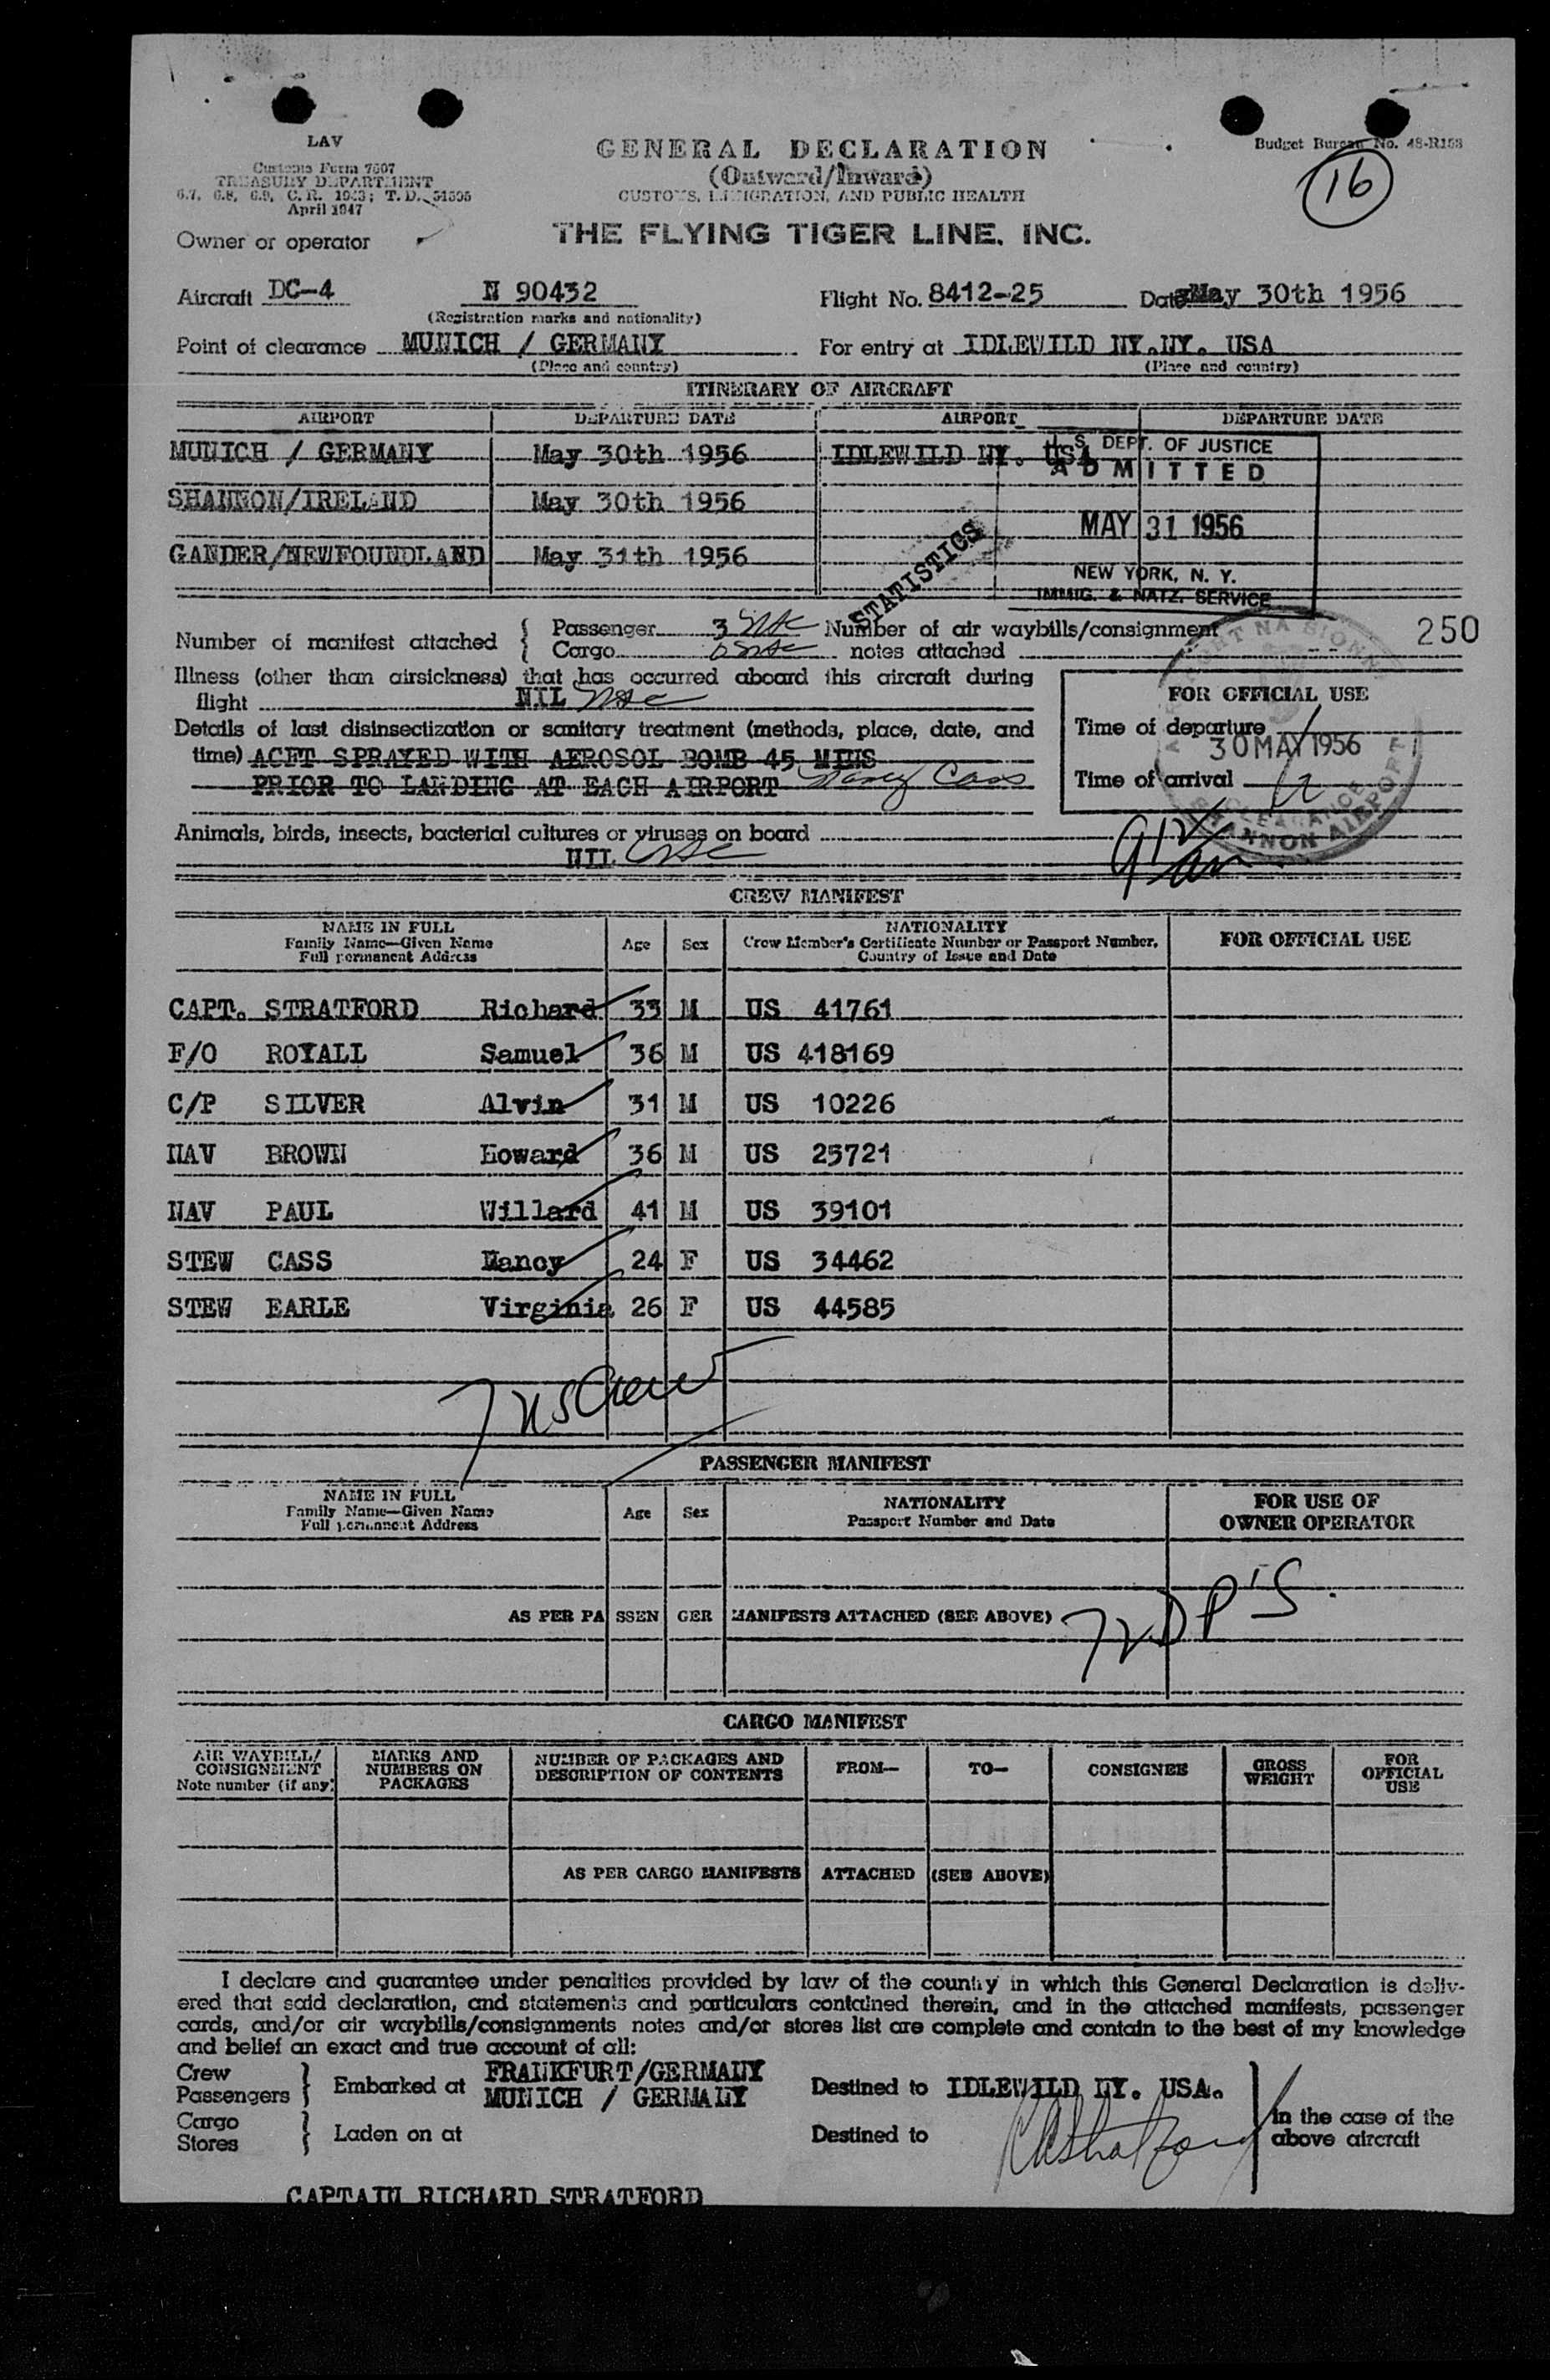 LAV
Customs Form 7507
TREASURY DEPARTMENT
6.7, 6.8, 6.9, C. R. 1943; T. D. 51505
April 1947
GENERAL DECLARATION
(Outward/Inward)
CUSTOMS, IMMIGRATION, AND PUBLIC HEALTH
Budget Bureau No. 48-R153
16
Owner or operator
THE FLYING TIGER LINE, INC.
Aircraft DC-4 N 90432 Flight No. 8412-25 Date May 30th 1956
(Registration marks and nationality)
Point of clearance MUNICH / GERMANY For entry at IDLEWILD NY.NY. USA
(Place and country) (Place and country)
ITINERARY OF AIRCRAFT
AIRPORT DEPARTURE DATE AIRPORT DEPARTURE DATE
MUNICH / GERMANY May 30th 1956 IDLEWILD NY. USA
SHANNON/IRELAND May 30th 1956
GANDER/NEWFOUNDLAND May 31th 1956
U.S. DEPT. OF JUSTICE
ADMITTED
MAY 31 1956
NEW YORK, N. Y.
IMMIG. & NATZ. SERVICE
STATISTICS
Number of manifest attached { Passenger 3 Number of air waybills/consignment 250
Cargo notes attached --
Illness (other than airsickness) that has occurred aboard this aircraft during
flight NIL
Details of last disinsectization or sanitary treatment (methods, place, date, and
time) ACFT SPRAYED WITH AEROSOL BOMB 45 MINS
PRIOR TO LANDING AT EACH AIRPORT Nancy Cass
FOR OFFICIAL USE
Time of departure
30 MAY 1956
Time of arrival
CLEARANCE
SHANNON AIRPORT
Animals, birds, insects, bacterial cultures or viruses on board
NIL
CREW MANIFEST
NAME IN FULL
Family Name—Given Name
Full permanent Address
Age Sex
NATIONALITY
Crew Member's Certificate Number or Passport Number,
Country of Issue and Date
FOR OFFICIAL USE
CAPT. STRATFORD Richard 33 M US 41761
F/O ROYALL Samuel 36 M US 418169
C/P SILVER Alvin 31 M US 10226
NAV BROWN Howard 36 M US 25721
NAV PAUL Willard 41 M US 39101
STEW CASS Nancy 24 F US 34462
STEW EARLE Virginia 26 F US 44585
7 US Crew
PASSENGER MANIFEST
NAME IN FULL
Family Name—Given Name
Full permanent Address
Age Sex
NATIONALITY
Passport Number and Date
FOR USE OF
OWNER OPERATOR
AS PER PASSENGER MANIFESTS ATTACHED (SEE ABOVE)
72 DP'S.
CARGO MANIFEST
AIR WAYBILL/
CONSIGNMENT
Note number (if any)
MARKS AND
NUMBERS ON
PACKAGES
NUMBER OF PACKAGES AND
DESCRIPTION OF CONTENTS
FROM— TO— CONSIGNEE
GROSS
WEIGHT
FOR
OFFICIAL
USE
AS PER CARGO MANIFESTS ATTACHED (SEE ABOVE)
I declare and guarantee under penalties provided by law of the country in which this General Declaration is deliv-
ered that said declaration, and statements and particulars contained therein, and in the attached manifests, passenger
cards, and/or air waybills/consignments notes and/or stores list are complete and contain to the best of my knowledge
and belief an exact and true account of all:
Crew
Passengers } Embarked at FRANKFURT/GERMANY
MUNICH / GERMANY
Destined to IDLEWILD NY. USA.
Cargo
Stores } Laden on at
Destined to
In the case of the
above aircraft
CAPTAIN RICHARD STRATFORD